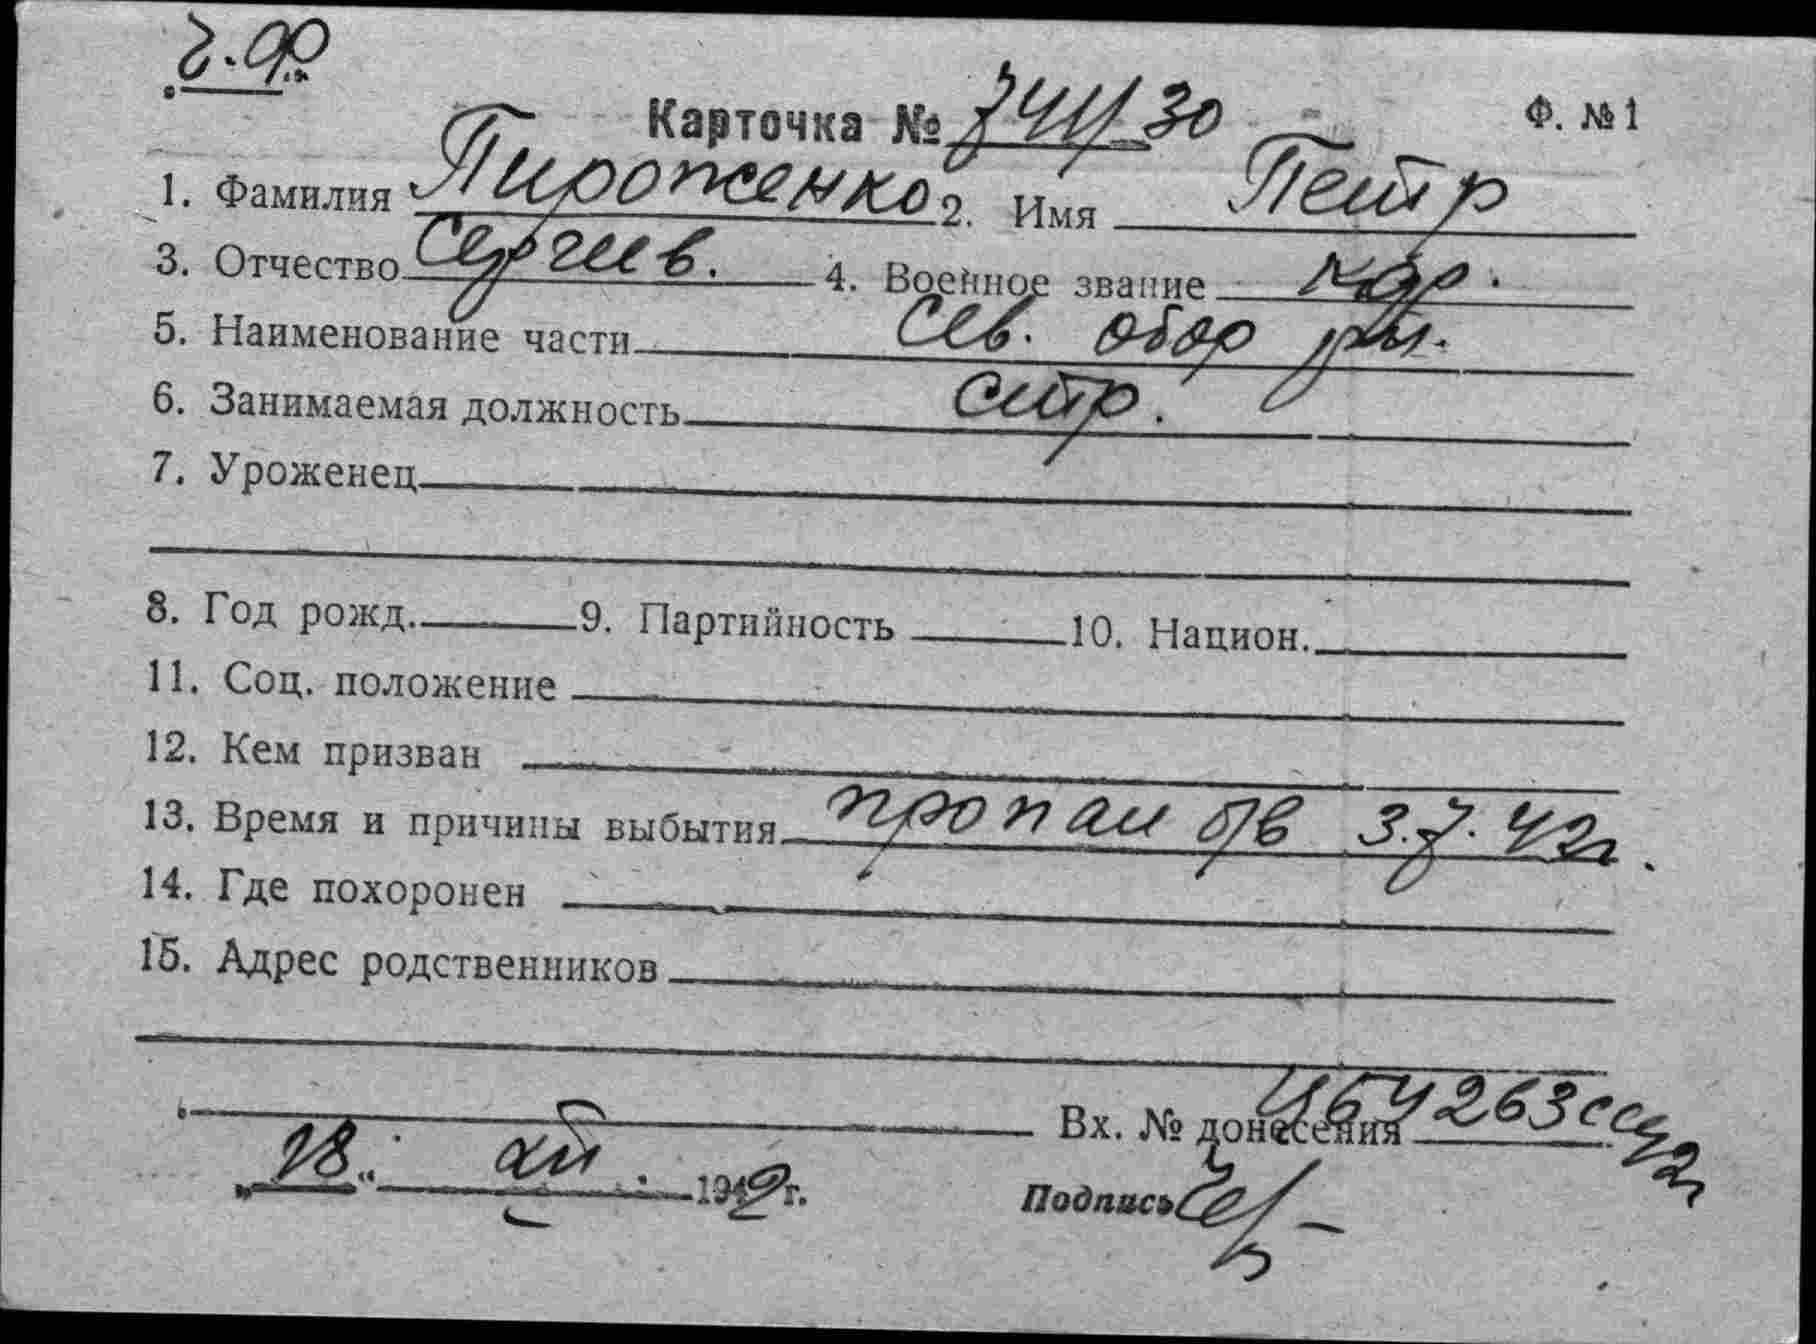 Ч.Ф.
Карточка № 741/30 Ф. №1
1. Фамилия Пироженко 2. Имя Петр
3. Отчество Сергеев. 4. Военное звание кр.
5. Наименование части Сев. обор
6. Занимаемая должность стр.
7. Уроженец
8. Год рожд. 9. Партийность 10. Национ.
11. Соц. положение
12. Кем призван
13. Время и причины выбытия пропал б/в 3.7.42г.
14. Где похоронен
15. Адрес родственников
Вх. № донесения
"18" 1942г. Подпись